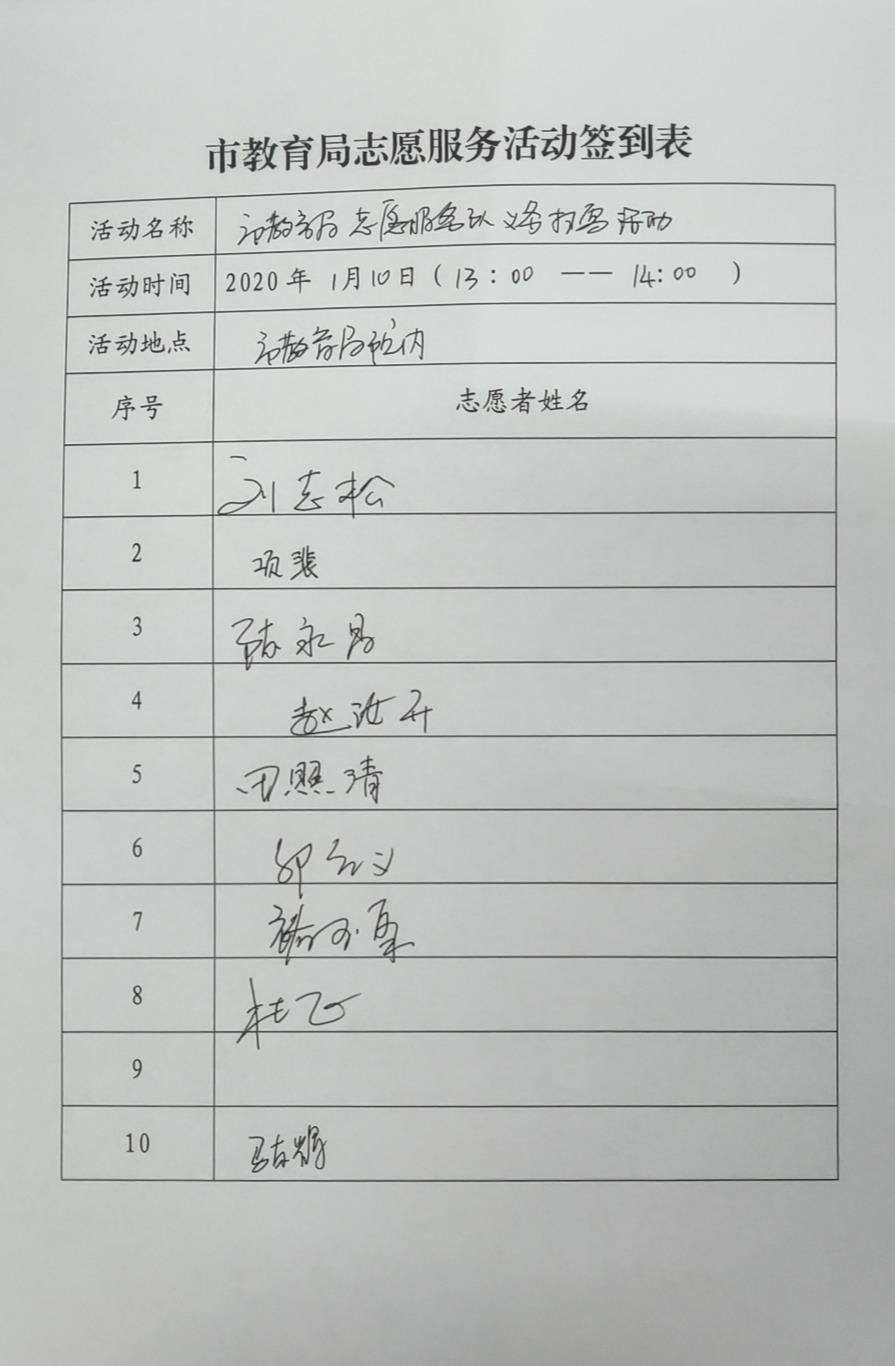 市教育局志愿服务活动签到表
活动名称 市教育局志愿服务队义务扫雪活动
活动时间 2020年 1月10日(13:00 —— 14:00 )
活动地点 市教育局院内
序号 志愿者姓名
1 刘志松
2 项裴
3 永
4 赵汝开
5 田照清
6 义
7
8 杜飞
9
10